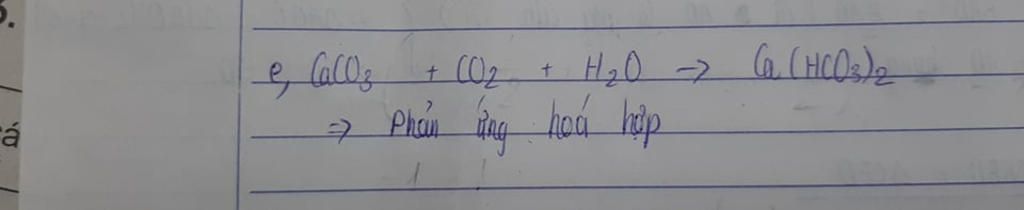 e, CaCO₃ + CO₂ + H₂O → Ca(HCO₃)₂
⇒ Phản ứng hoá hợp